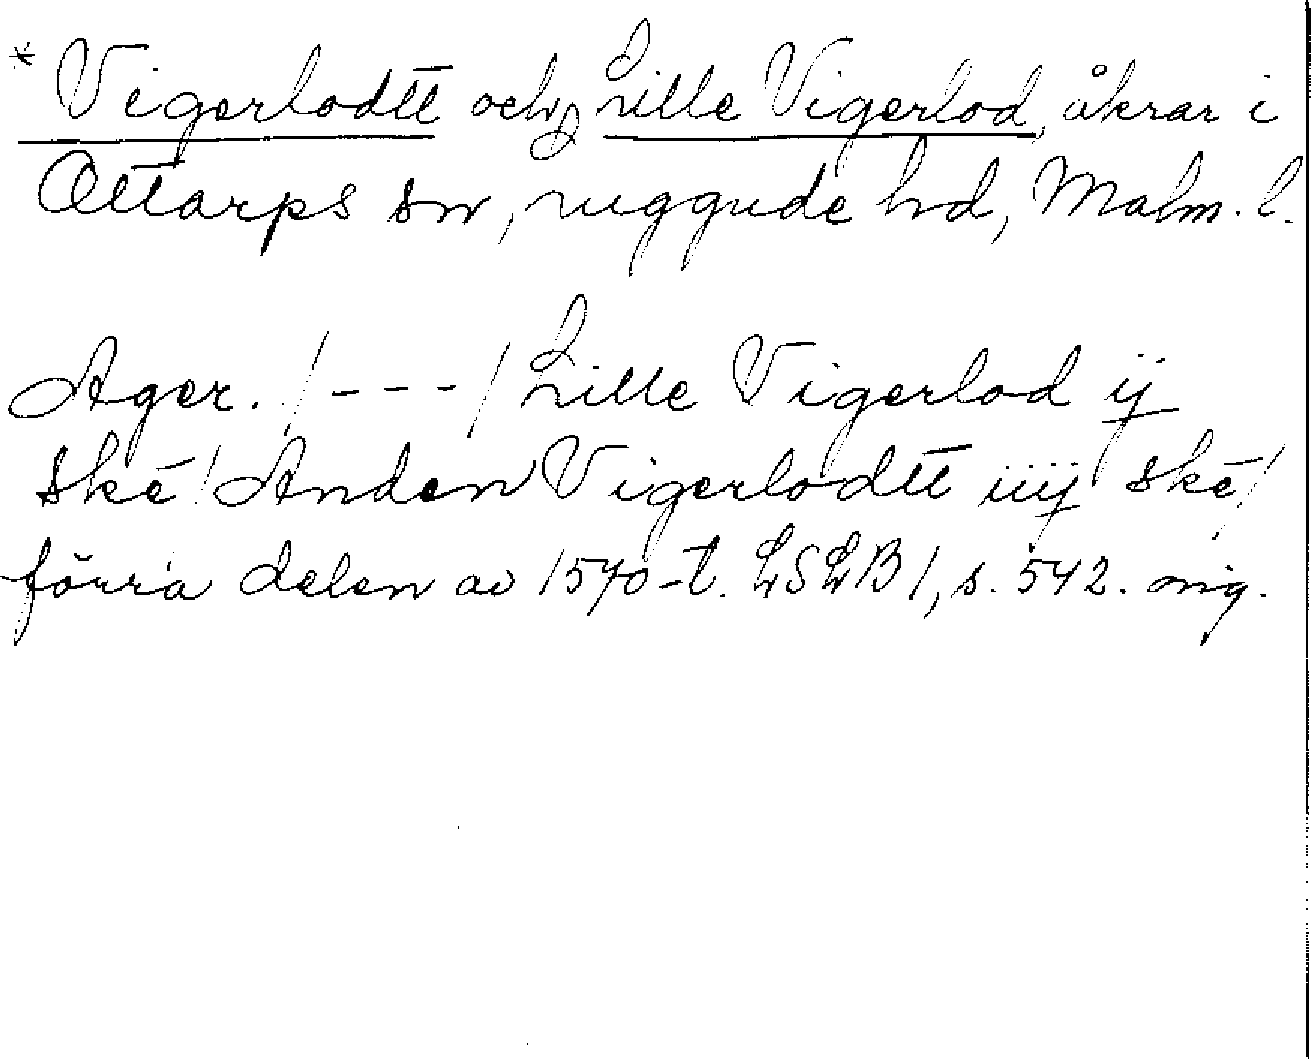 * Vigerlodtt och Lille Vigerlod, åkrar i
Ottarps sn, ruggude hd, Malm. l.
Ager. /---/ Lille Vigerlod ij
skē / Anden Vigerlodtt iiij skē /
förra delen av 1570-t. LSLB 1, s. 542. orig.